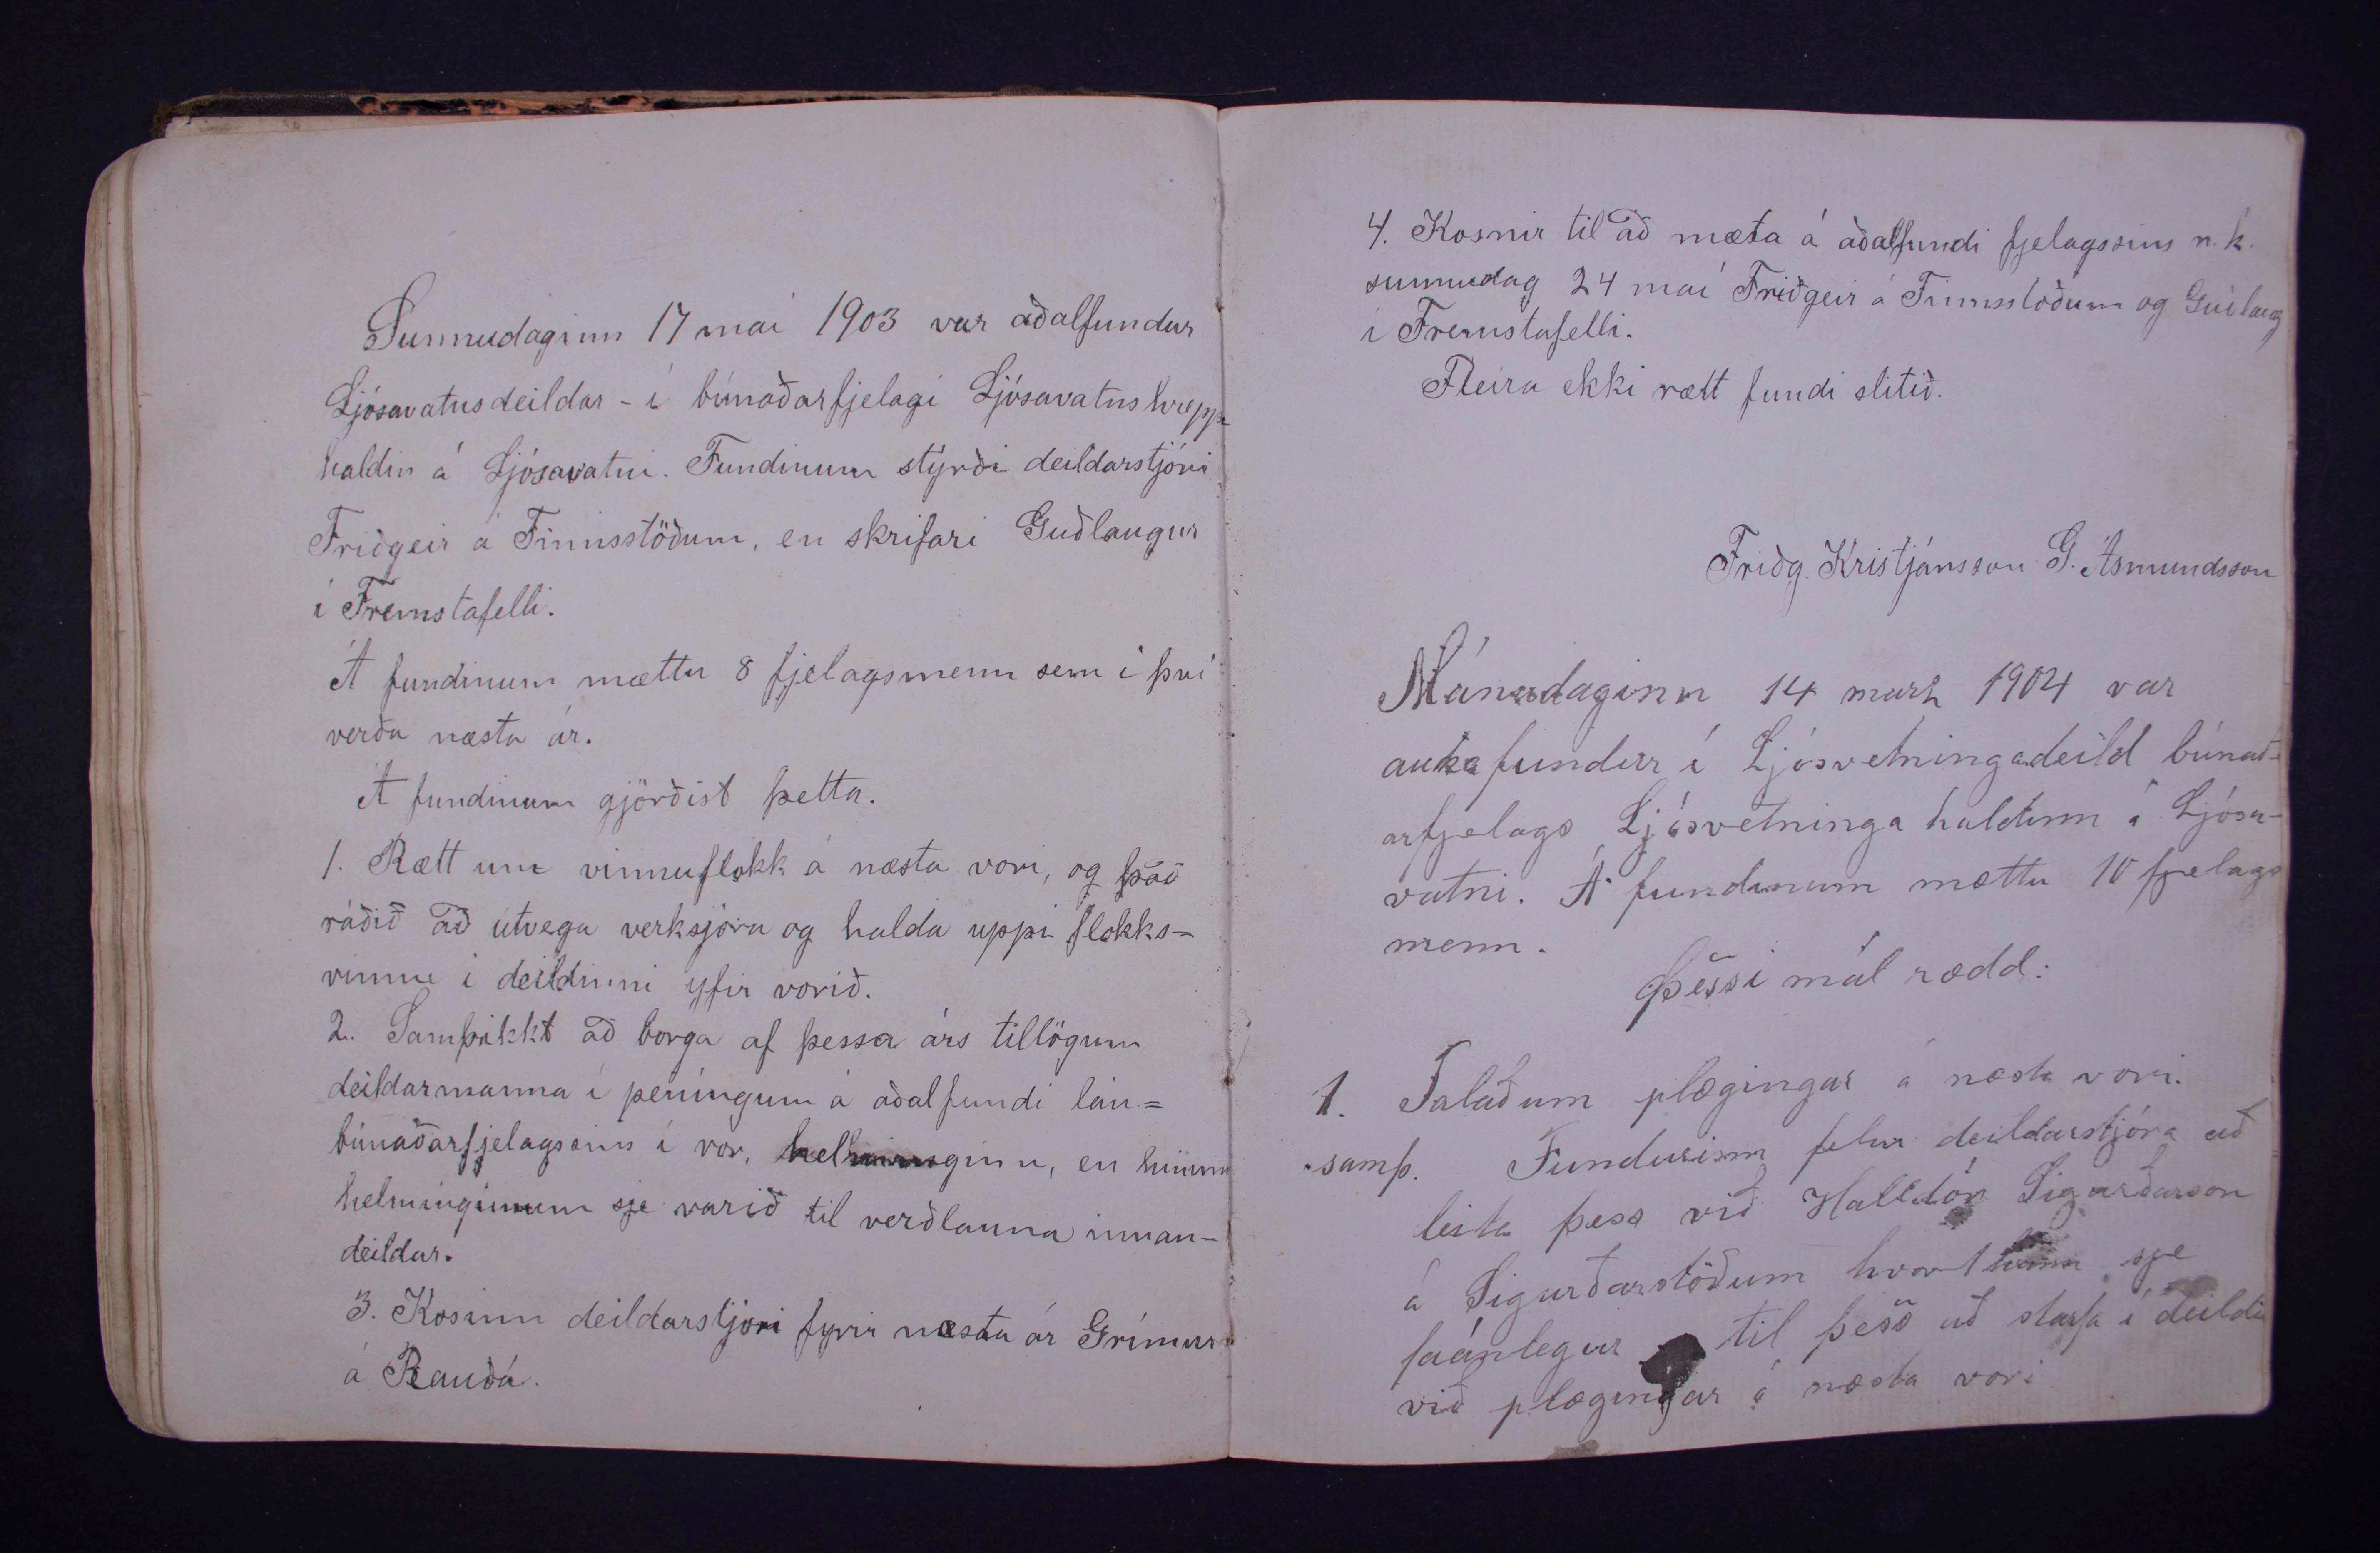 Sunnudaginn 17 mai 1903 var aðalfundur
Ljósavatnsdeildar - í búnaðarfjelagi Ljósavatnshrepps
haldin á Ljósavatni. Fundinum stýrði deildarstjóri
Friðgeir á Finnsstöðum, en skrifari Guðlaugur
í Fremstafelli.
Á fundinum mættu 8 fjelagsmenn sem í því
verða næsta ár.
Á fundinum gjörðist þetta.
1. Rætt um vinnuflokk á næsta vori, og það
ráðið að útvega verksjóra og halda uppi flokks-
vinnu í deildinni yfir vorið.
2. Samþikkt að borga af þessa árs tillögum
deildarmanna í peníngum á aðalfundi
búnaðarfjelagsins í vor, helminginn, en hinum
helmíngnum sje varið til verðlauna innan-
deildar.
3. Kosinn deildarstjóri fyrir næsta ár Grímur
á Rauðá.
4. Kosnir til að mæta á aðalfundi fjelagssins n.k.
sunnudag 24 maí Friðgeir á Finnsstöðum og Guðlaug
í Fremstafelli.
Fleira ekki rætt fundi slitið.
Friðg. Kristjánsson G. Ásmundsson
Mánudaginn 14 marz 1904 var
aukafundur í Ljósvetningadeild búnað-
arfjelags Ljósvetninga haldinn á Ljósa-
vatni. Á fundinum mættu 10 fjelags
menn.
Þessi mál rædd:
1. Talað um plægingar á næsta vori.
samþ. Fundurinn felur deildarstjóra að
leita þess við Halldór Sigurðarson
á Sigurðarstöðum hvort hann sje
faánlegur til þess að starfa í deildin
við plægingar á næsta vori